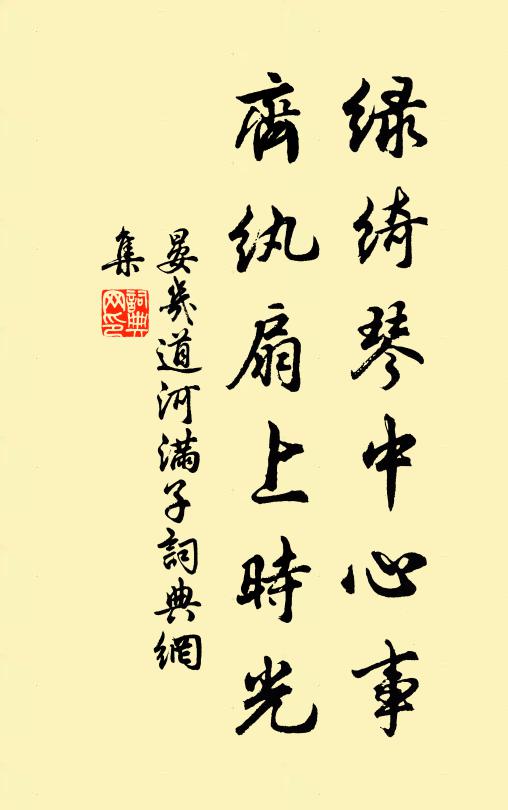 绿绮琴中心事
齊紈扇上時光
晏幾道河滿子詞典網
集
詞典
网印